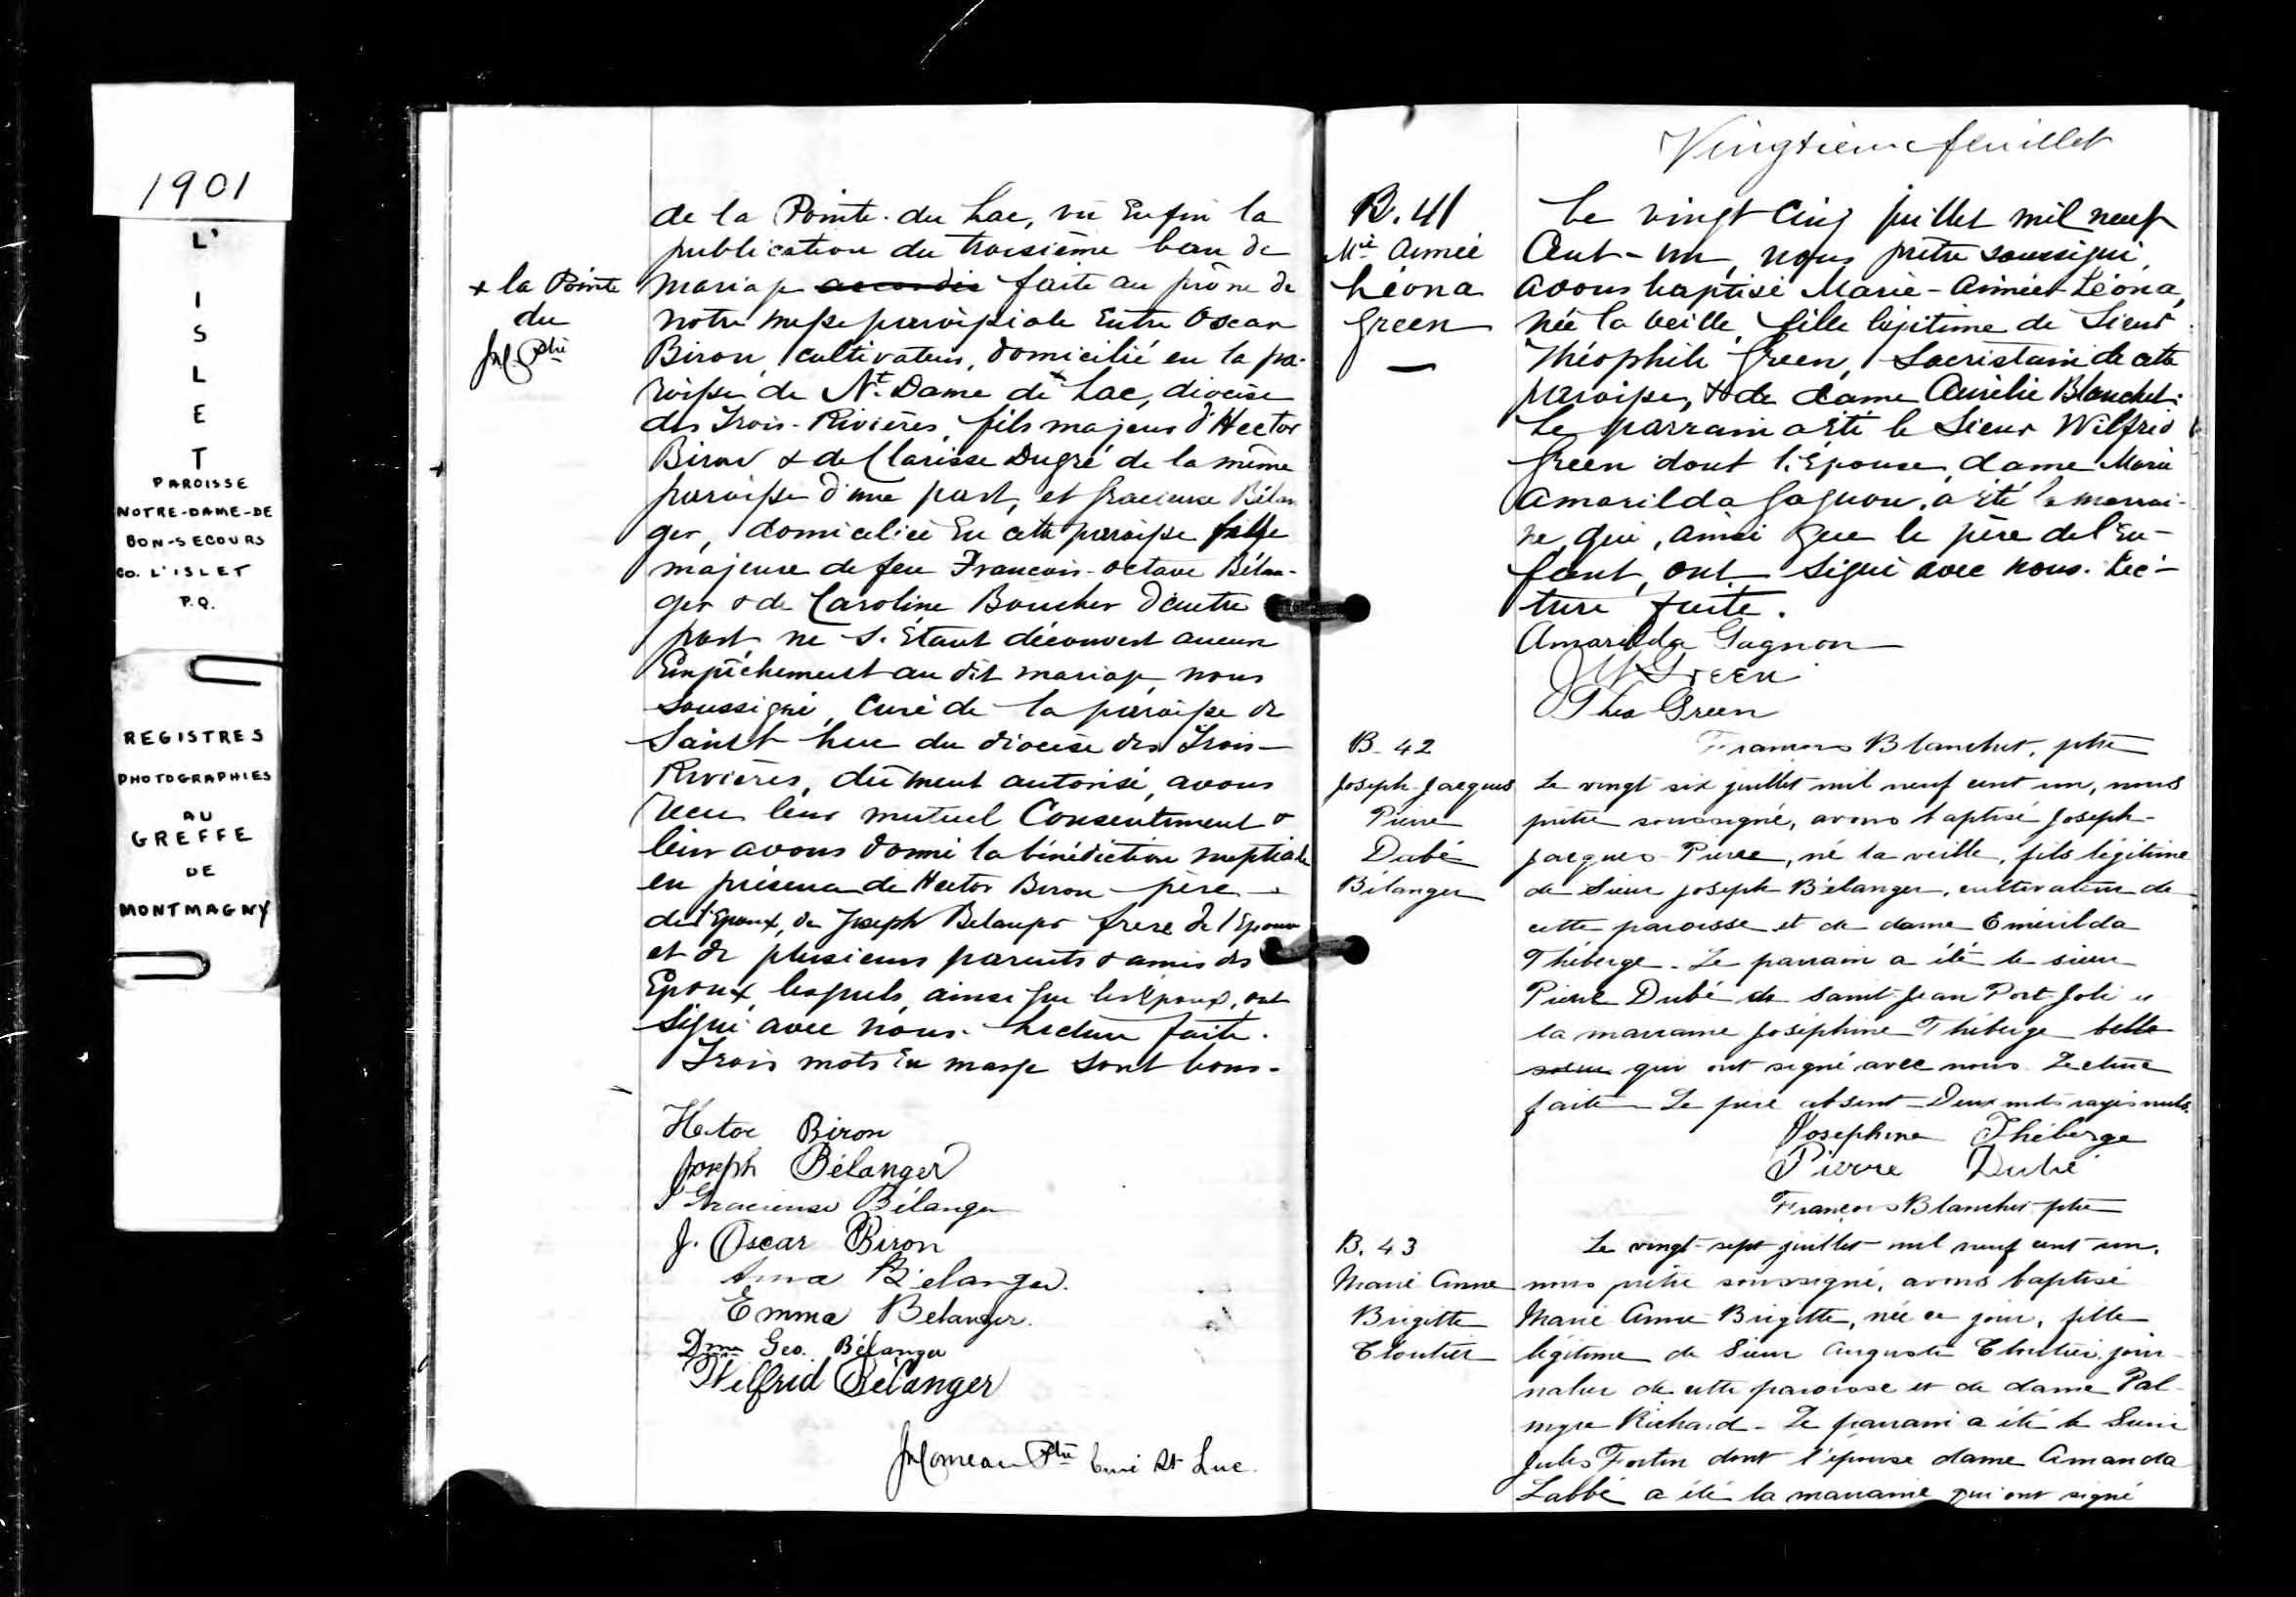 1901
L'
I
S
L
E
T
PAROISSE
NOTRE-DAME-DE
BON-SECOURS
CO. L'ISLET
P.Q.
REGISTRES
PHOTOGRAPHIES
AU
GREFFE
DE
MONTMAGNY
de la Pointe du Lac, vu Enfin la
publication du troisième ban de
mariage accordée faite au prône de
notre messe paroissiale Entre Oscar
Biron, cultivateur, domicilié en la pa-
roisse de Nt. Dame de x Lac, diocèse
des Trois-Rivières, fils majeur d'Hector
Biron & de Clarisse Dugré de la même
paroisse d'une part, et Gracieuse Bélan
ger, domiciliée En cette paroisse fille
majeure de feu François-Octave Bélan-
ger & de Caroline Boucher d'autre
part, ne s'Etant découvert aucun
Empêchement au dit mariage, nous
soussigné, Curé de la paroisse de
Saint Luc du diocèse des Trois-
Rivières, dûment autorisé, avons
recu leur mutuel Consentement &
leur avons donné la bénédiction nuptiale
en présence de Hector Biron père
de l'Epoux, de Joseph Belanger frere de l'Epouse
et de plusieurs parents & amis des
Epoux, lesquels, ainsi que les époux, ont
Signé avec nous. Lecture faite.
Trois mots En marge sont bons.
x la Pointe
du
Ptre
Hector Biron
Joseph Bélanger
Gracieuse Bélanger
J. Oscar Biron
Anna Bélanger.
Emma Belanger.
Dme Geo. Bélanger
Wilfrid Bélanger
Comeau Ptre Curé St Luc.
Vingtième feuillet
B. 41
Mie Aimée
Léona
Green
Le vingt Cinq juillet mil neuf
Cent-un, nous prêtre soussigné,
avons baptisé Marie-Aimée-Léona,
née la veille, fille légitime de Sieur
Théophile Green, Sacristain de cette
paroisse, & de dame Aurélie Blanchet.
Le parrain a Eté le Sieur Wilfrid
Green dont l'Epouse, dame Marie
Amarilda Gagnon, a été la marrai-
ne, qui, ainsi que le père de l'En-
fant, ont signé avec nous. Lec-
ture faite.
Amarilda Gagnon
J W Green
Theo Green
François Blanchet, ptre
B. 42
Joseph-Jacques
Pierre
Dubé
Bélanger
Le vingt six juillet mil neuf cent un, nous
prêtre soussigné, avons baptisé Joseph-
Jacques-Pierre, né la veille, fils légitime
de Sieur Joseph Bélanger, cultivateur de
cette paroisse et de dame Emérilda
Théberge. Le parrain a été le sieur
Pierre Dubé de Saint-Jean Port-Joli et
la marraine Joséphine Théberge belle
soeur qui ont signé avec nous. Lecture
faite Le père absent - Deux mots rayés nuls.
Josephine Théberge
Pierre Dubé
François Blanchet ptre
B. 43
Marie Anne
Brigitte
Cloutier
Le vingt-sept juillet mil neuf cent un,
nous prêtre soussigné, avons baptisé
Marie Anne Brigitte, née ce jour, fille
légitime de Sieur Auguste Cloutier, jour-
nalier de cette paroisse et de dame Pal-
myre Richard - Le parrain a été le Sieur
Jules Fortin dont l'épouse dame Amanda
Labbé a été la marraine qui ont signé